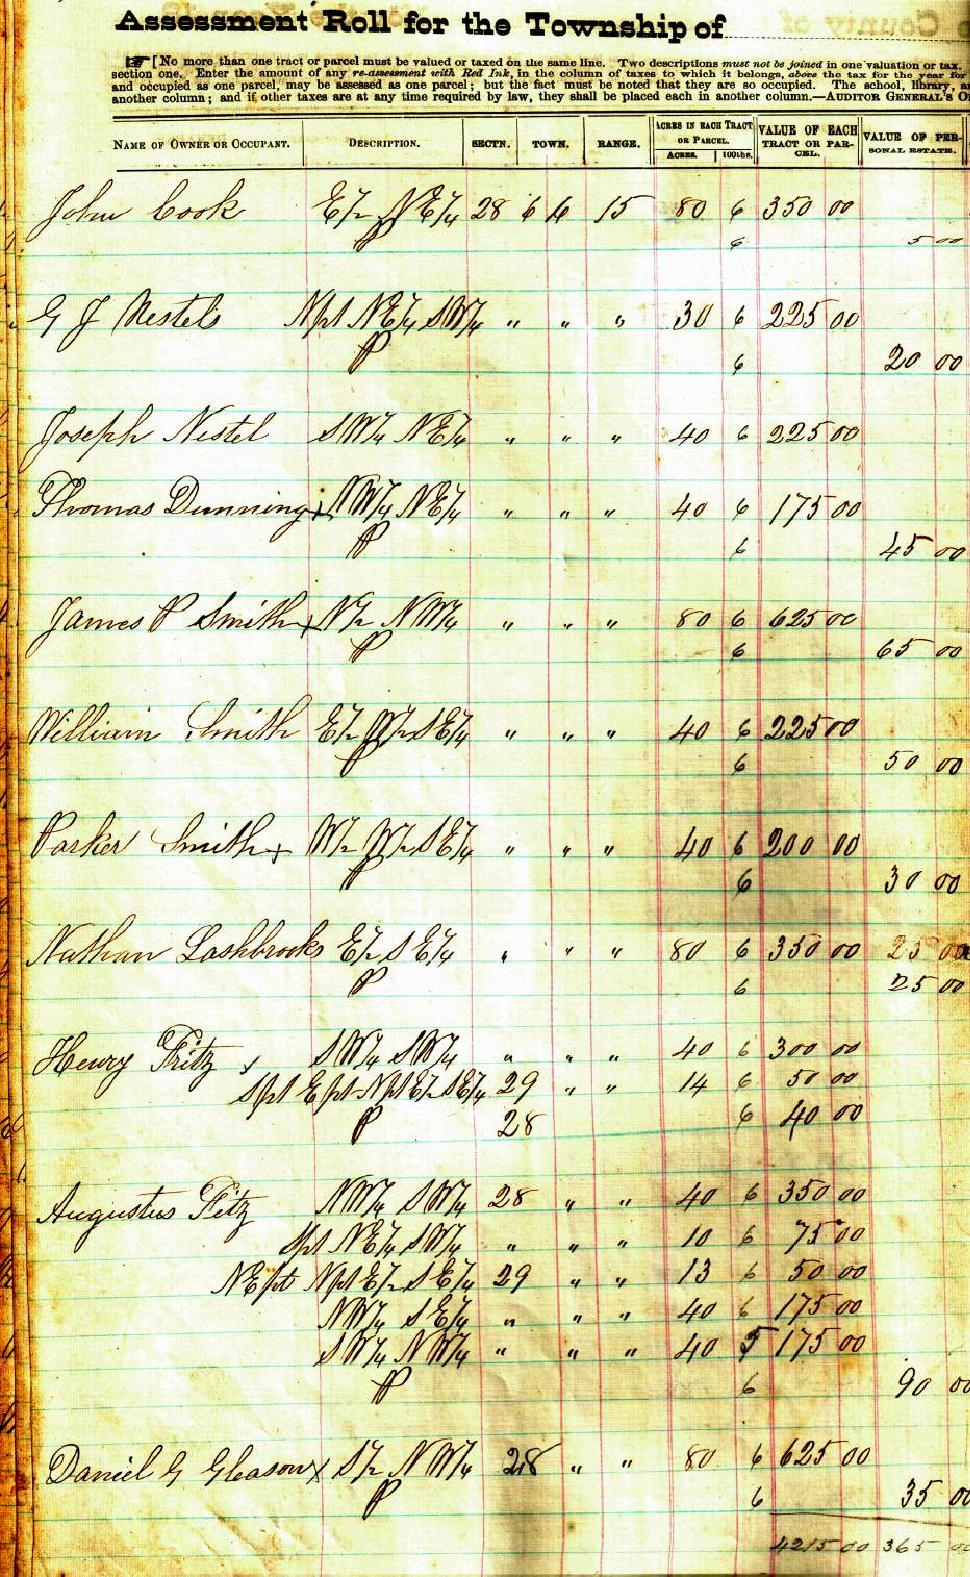 Assessment Roll for the Township of
[No more than one tract or parcel must be valued or taxed on the same line. Two descriptions must not be joined in one valuation or tax.
section one. Enter the amount of any re-assessment with Red Ink, in the column of taxes to which it belongs, above the tax for the year for
and occupied as one parcel, may be assessed as one parcel; but the fact must be noted that they are so occupied. The school, library, a
another column; and if other taxes are at any time required by law, they shall be placed each in another column.—AUDITOR GENERAL'S O
NAME OF OWNER OR OCCUPANT. DESCRIPTION. SECTN. TOWN. RANGE. ACRES IN EACH TRACT OR PARCEL. ACRES. 100ths. VALUE OF EACH TRACT OR PAR-CEL. VALUE OF PER-SONAL ESTATE.
John Cook E½ NE¼ 28 6 6 15 80 6 350 00
P 6 5 00
G J Nestels Npt NE¼ SW¼ " " " 30 6 225 00
P 6 20 00
Joseph Nestel SW¼ NE¼ " " " 40 6 225 00
Thomas Dunning NW¼ NE¼ " " " 40 6 175 00
P 6 45 00
James P Smith N½ NW¼ " " " 80 6 625 00
P 6 65 00
William Smith E½ W½ SE¼ " " " 40 6 225 00
P 6 50 00
Parker Smith + W½ W½ SE¼ " " " 40 6 200 00
P 6 30 00
Nathan Lashbrooks E½ SE¼ " " " 80 6 350 00 25 00
P 6 25 00
Henry Fitz SW¼ SW¼ " " " 40 6 300 00
Spt Ept Npt E½ SE¼ 29 " " 14 6 50 00
P 28 6 40 00
Augustus Fitz NW¼ SW¼ 28 " " 40 6 350 00
Spt NE¼ SW¼ " " " 10 6 75 00
NEpt Npt E½ SE¼ 29 " " 13 6 50 00
NW¼ SE¼ " " " 40 6 175 00
SW¼ NW¼ " " " 40 5 175 00
P 6 90 00
Daniel G Gleason x S½ NW¼ 28 " " 80 6 625 00
P 6 35 00
4215 00 365 00